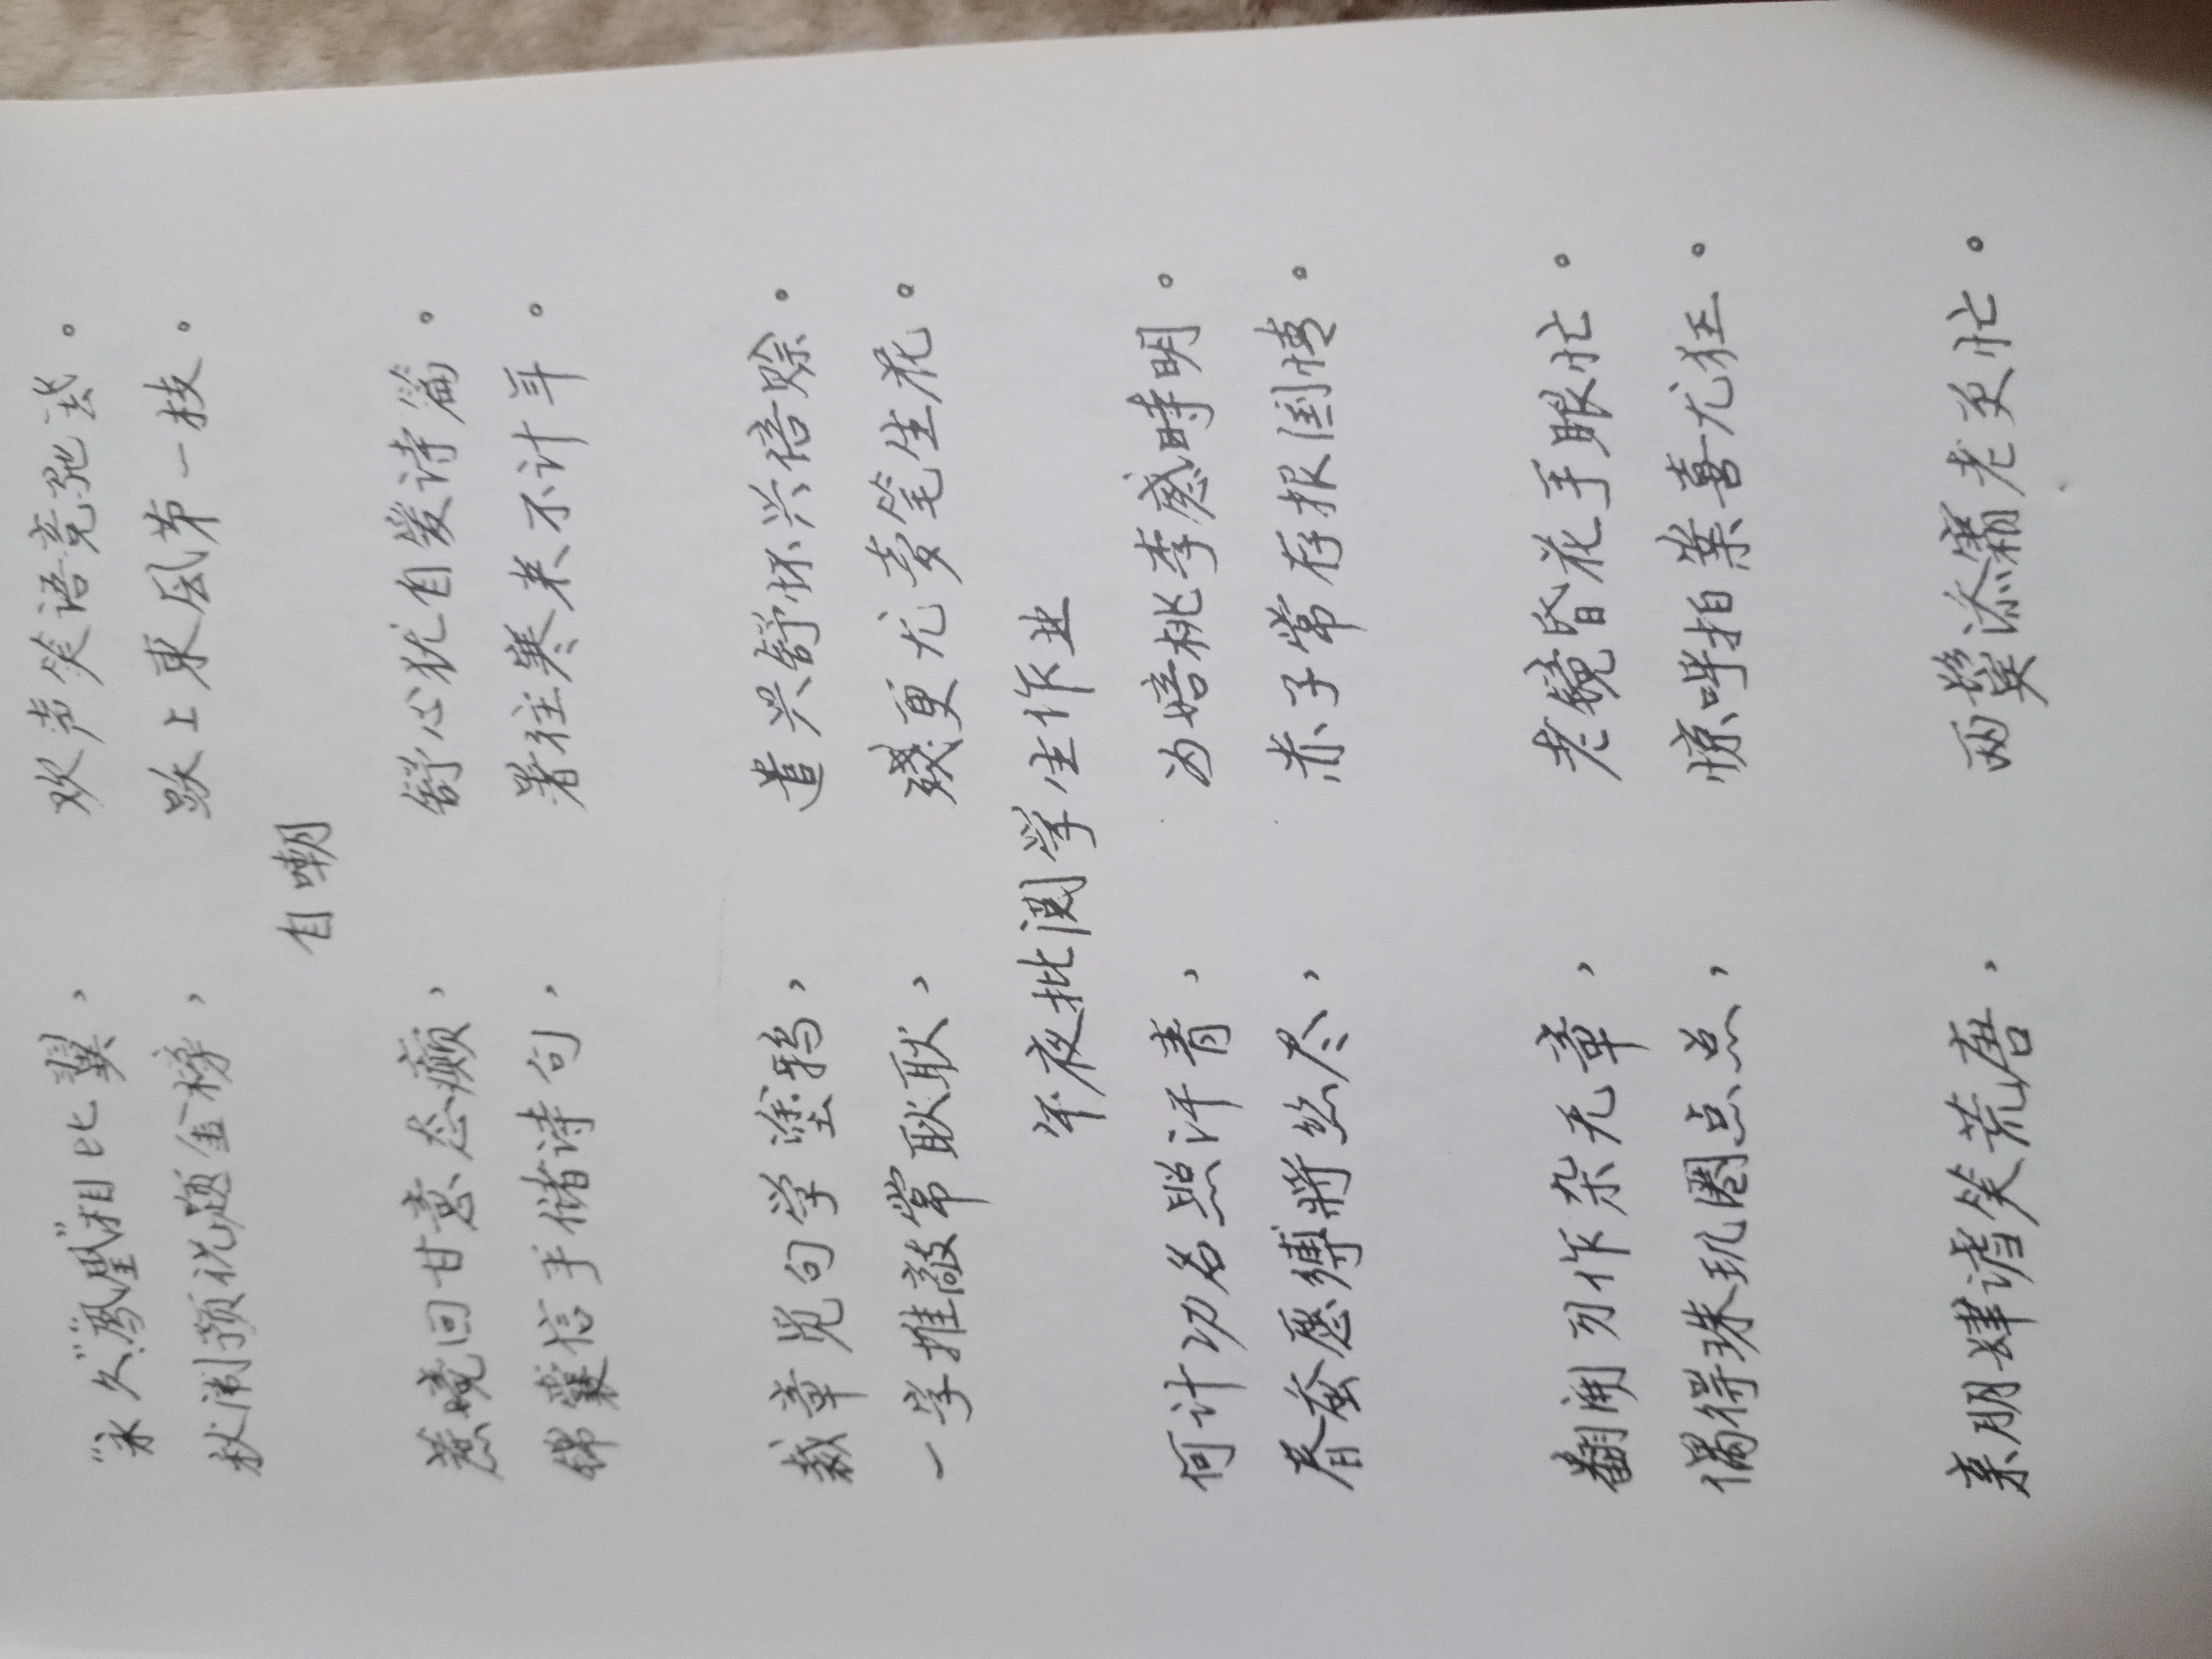 "永久""凤凰"相比翼，欢声笑语竞驰迷。
秋闱预祝题金榜，跃上東风第一枝。
自嘲
蔗境回甘意态癫，舒心犹自爱诗篇。
锦囊信手储诗句，暑往寒来不计年。
裁章觅句学塗鸦，遣兴舒怀兴倍赊。
一字推敲常耿耿，残更尤未笔生花。
午夜批阅学生作业
何计功名照汗青，为培桃李感時明。
春蚕愿缚將丝尽，赤子常存报国情。
翻開习作杂无章，老镜昏花手眼忙。
偶得珠玑圈点点，惊呼拍案喜尤狂。
亲朋肆谑笑荒唐，两鬓添霜老更忙。